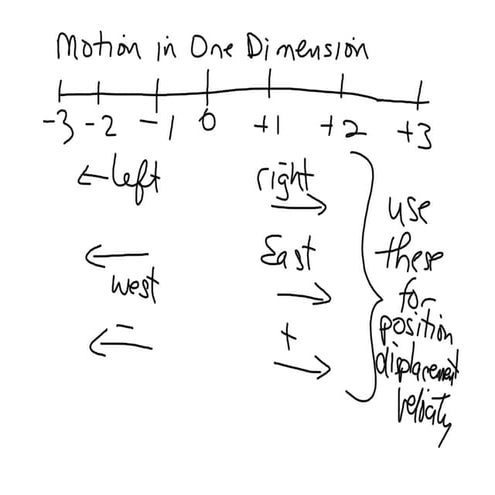 Motion in One Dimension
-3 -2 -1 0 +1 +2 +3
left right
East
west
- +
use
these
for
position
displacement
velocity